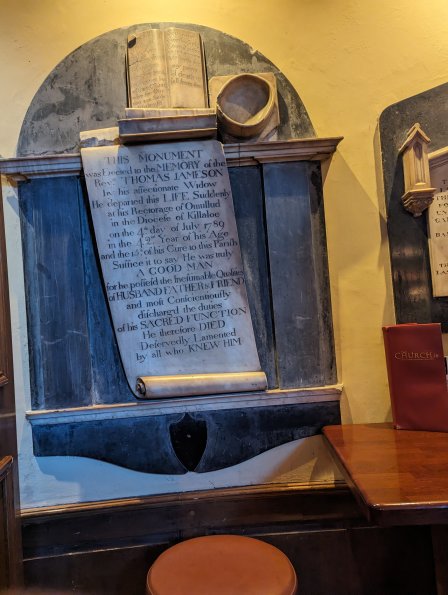 THIS MONUMENT
was Erected to the MEMORY of the
Revd. THOMAS JAMESON
by his affectionate Widow
He departed this LIFE Suddenly
at his Rectorage of
in the Diocese of Killaloe
on the 4th day of July 1789
in the 42d Year of his Age
and the of his Cure to this Parish
Suffice it to say He was truly
A GOOD MAN
for he possess'd the Inestimable Qualities
of HUSBAND FATHER & FRIEND
and most Conscientiously
discharg'd the duties
of his SACRED FUNCTION
He therefore DIED
Deservedly Lamented
by all who KNEW HIM
CHURCH